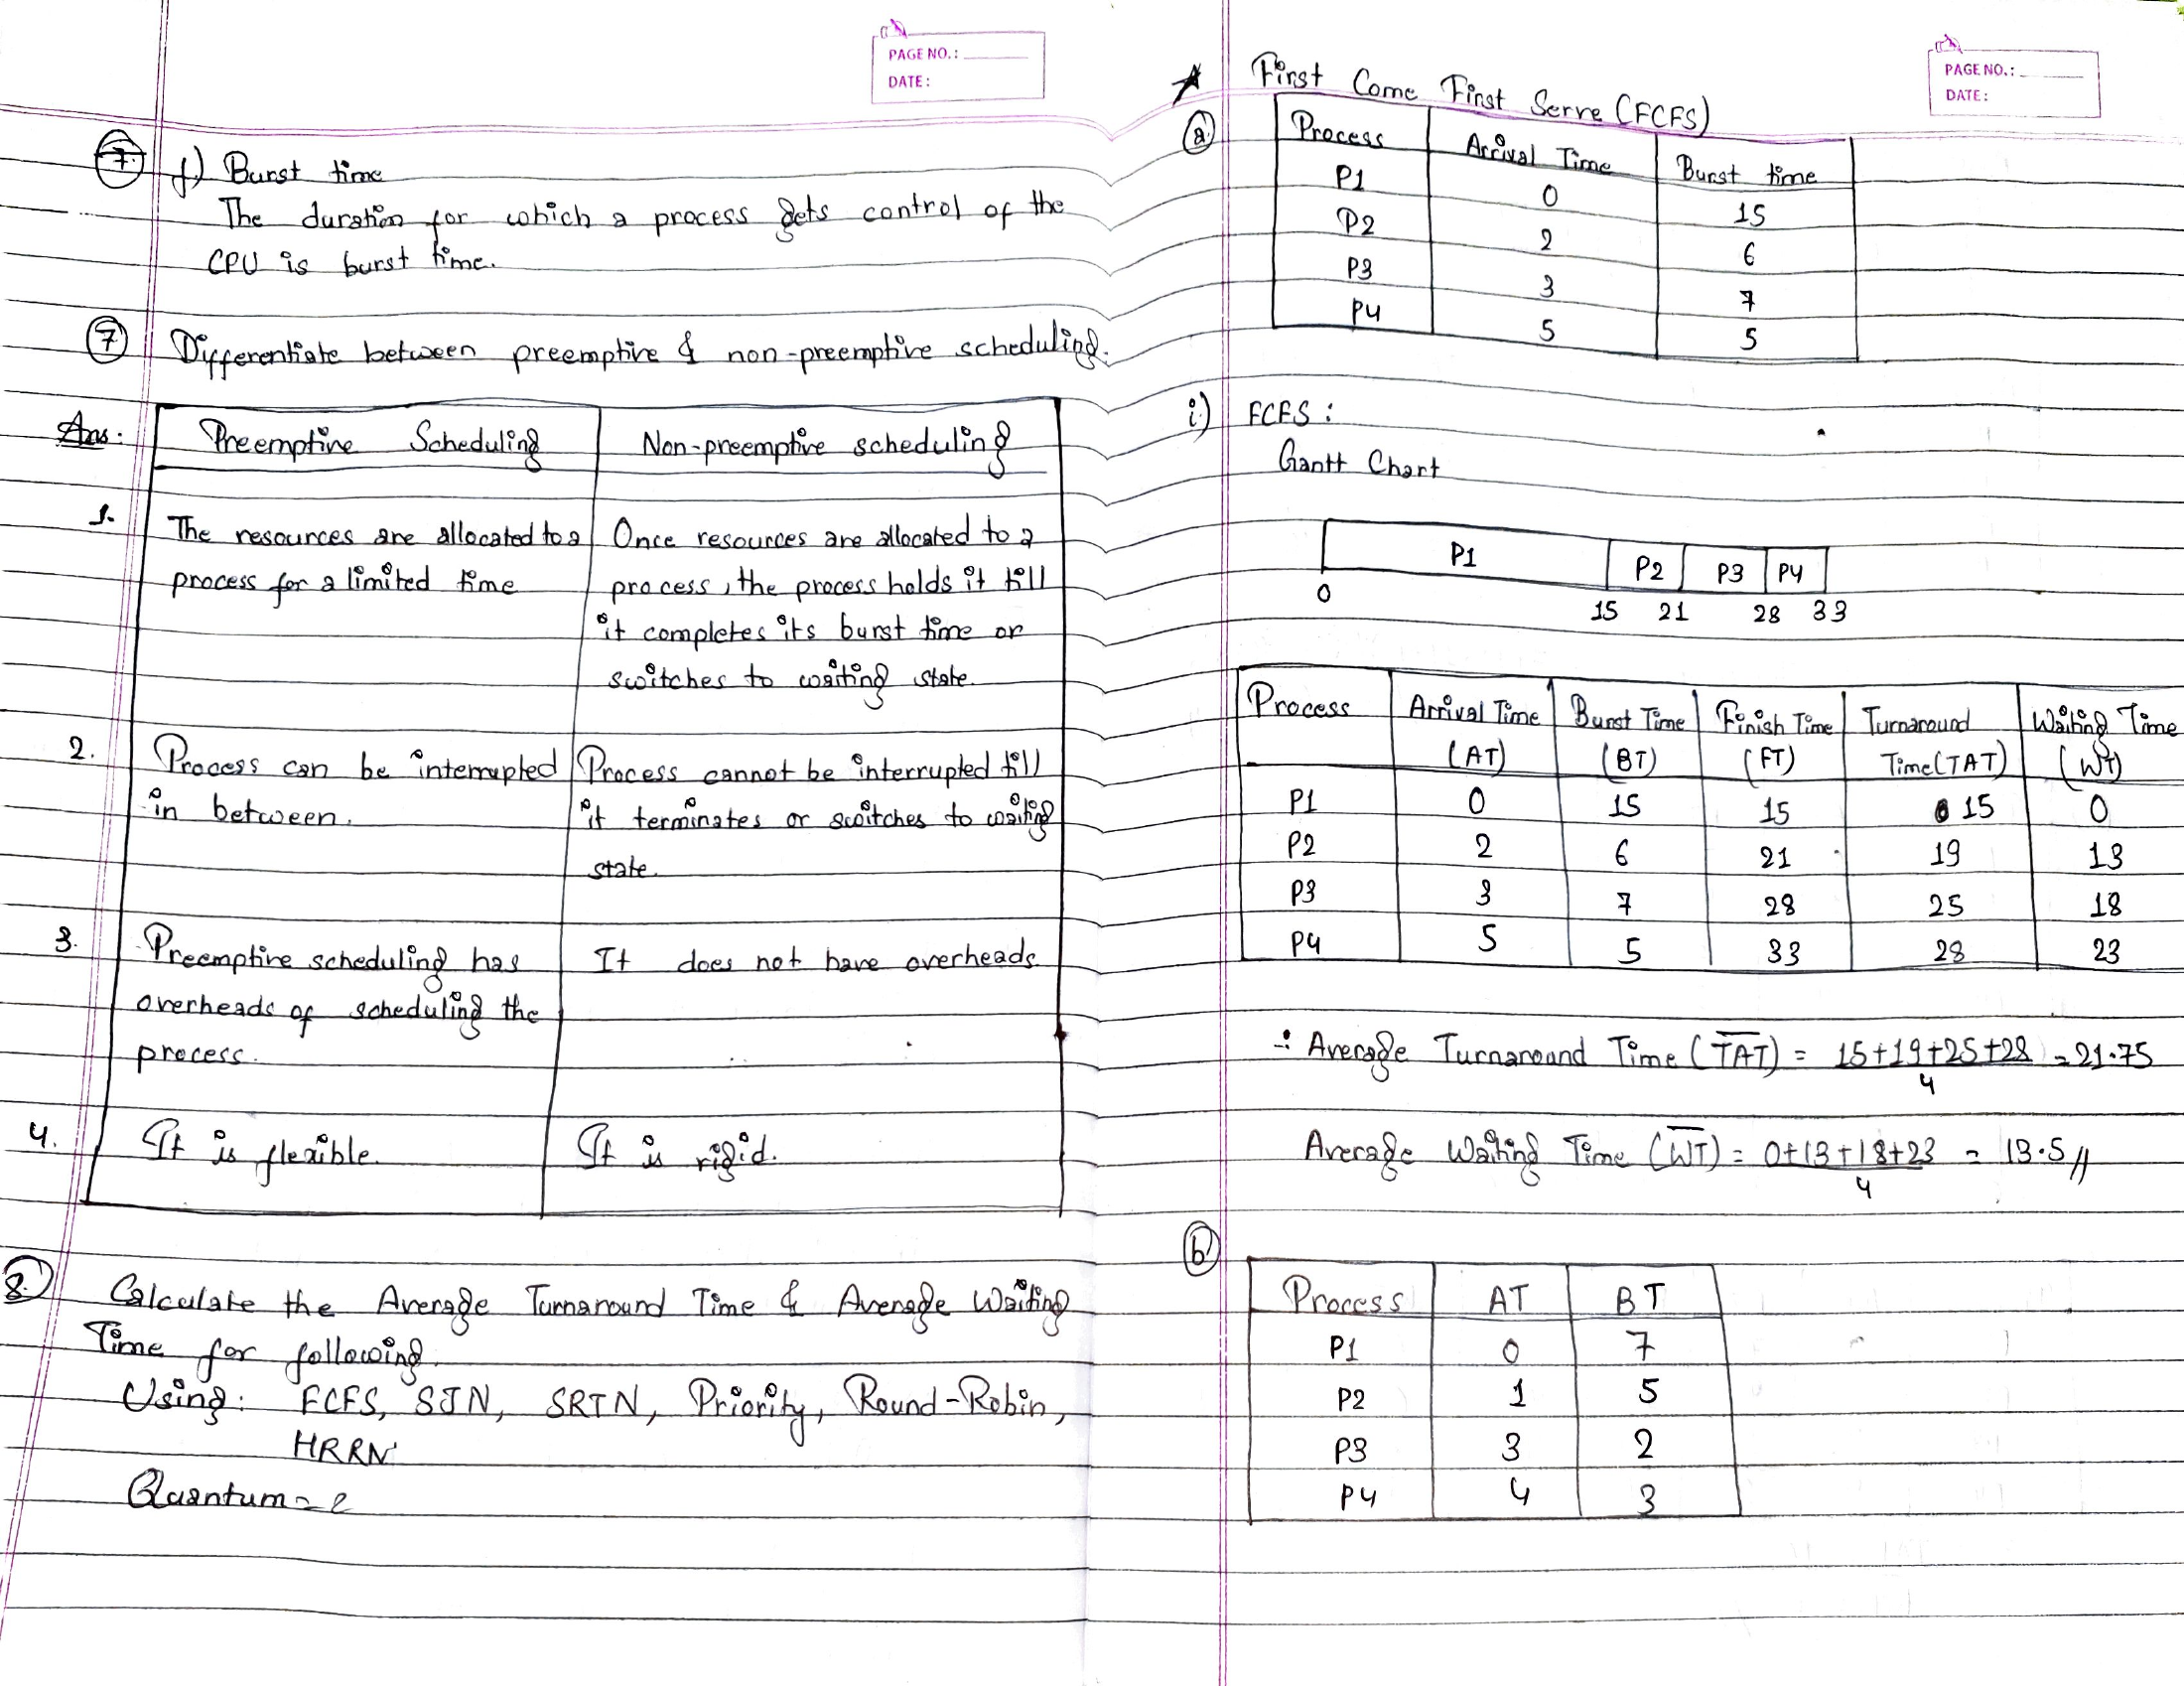 PAGE NO.:
DATE:
7. f) Burst time
The duration for which a process gets control of the
CPU is burst time.
7 Differentiate between preemptive & non-preemptive scheduling.
Ans. Preemptive Scheduling Non-preemptive scheduling
1. The resources are allocated to a Once resources are allocated to a
process for a limited time process, the process holds it till
it completes its burst time or
switches to waiting state.
2. Process can be interrupted Process cannot be interrupted till
in between. it terminates or switches to waiting
state.
3. Preemptive scheduling has It does not have overheads.
overheads of scheduling the
process.
4. It is flexible. It is rigid.
8. Calculate the Average Turnaround Time & Average Waiting
Time for following.
Using: FCFS, SJN, SRTN, Priority, Round-Robin,
HRRN
Quantum = 2
PAGE NO.:
DATE:
First Come First Serve (FCFS)
a Process Arrival Time Burst time
P1 0 15
P2 2 6
P3 3 7
P4 5 5
i) FCFS :
Gantt Chart
P1 P2 P3 P4
0 15 21 28 33
Process Arrival Time Burst Time Finish Time Turnaround Waiting Time
(AT) (BT) (FT) Time(TAT) (WT)
P1 0 15 15 15 0
P2 2 6 21 19 13
P3 3 7 28 25 18
P4 5 5 33 28 23
∴ Average Turnaround Time (TAT) = 15+19+25+28 = 21.75
4
Average Waiting Time (WT) = 0+13+18+23 = 13.5//
4
b Process AT BT
P1 0 7
P2 1 5
P3 3 2
P4 4 3